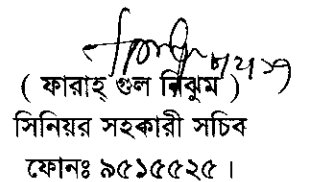 ( ফারাহ্ গুল নিঝুম )
সিনিয়র সহকারী সচিব
ফোনঃ ৯৫১৫৫২৫ ।